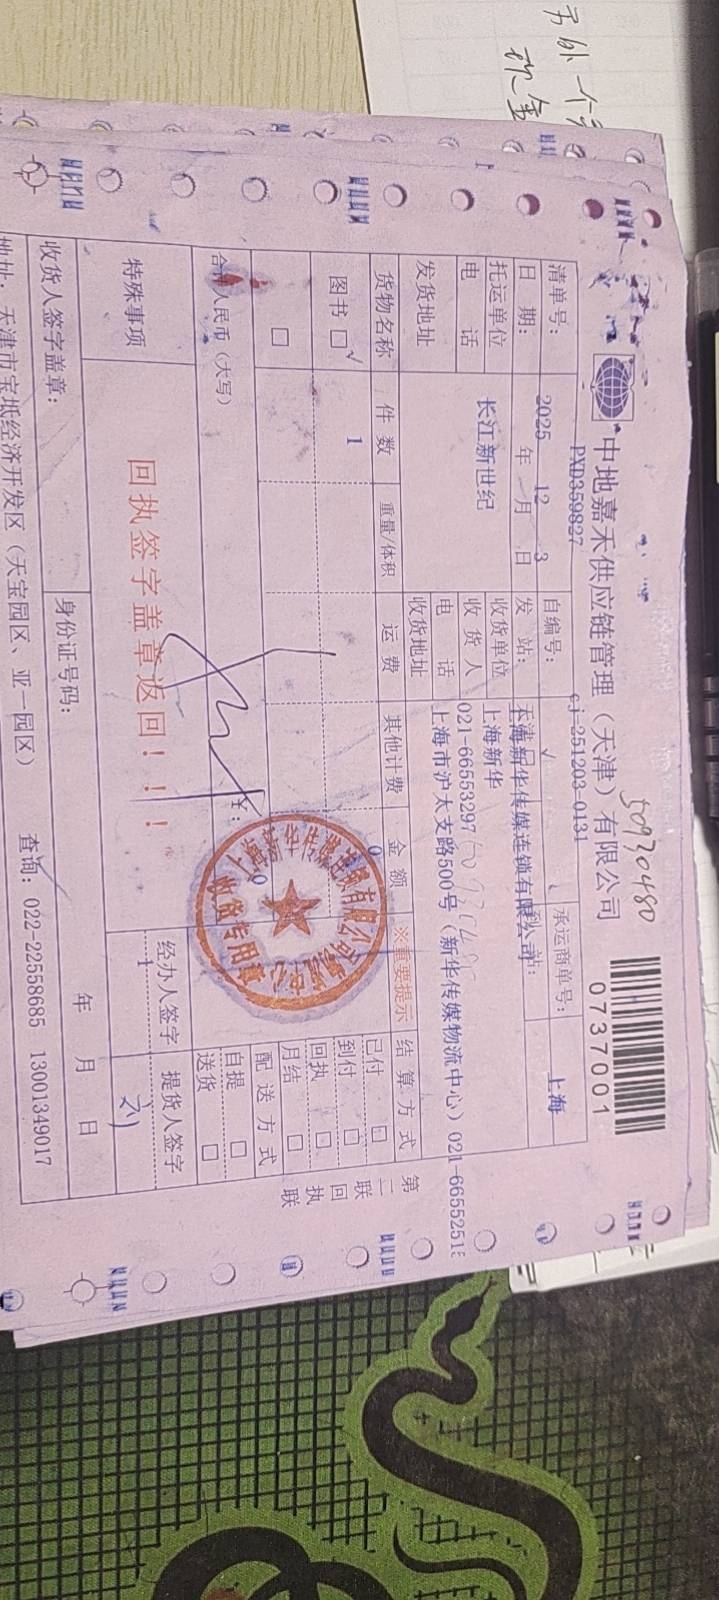 另外一个
现金
50930480
中地嘉禾供应链管理（天津）有限公司
0737001
PXD359827
cj-251203-0131
清单号：
自编号：
承运商单号：
日 期：
2025 年 12 月 3 日
发 站：
天津
上海
托运单位
长江新世纪
收货单位
上海新华传媒连锁有限公司
电 话
收 货 人
上海新华
发货地址
电 话
021-66553297
收货地址
上海市沪太支路500号（新华传媒物流中心）021-6655251
货物名称
件 数
重量/体积
运 费
其他计费
金 额
※重要提示
结 算 方 式
图书 □ √
1
0
已付 □
到付 □
□
回执 □
月结 □
合计人民币（大写）
￥：
0
配 送 方 式
自提 □
送货 □
收货专用章
特殊事项
回执签字盖章返回！！！
经办人签字
提货人签字
1
刘
收货人签字盖章：
身份证号码：
年 月 日
地址：天津市宝坻经济开发区（天宝园区、亚一园区）
查询：022-22558685 13001349017
第二联 回执联